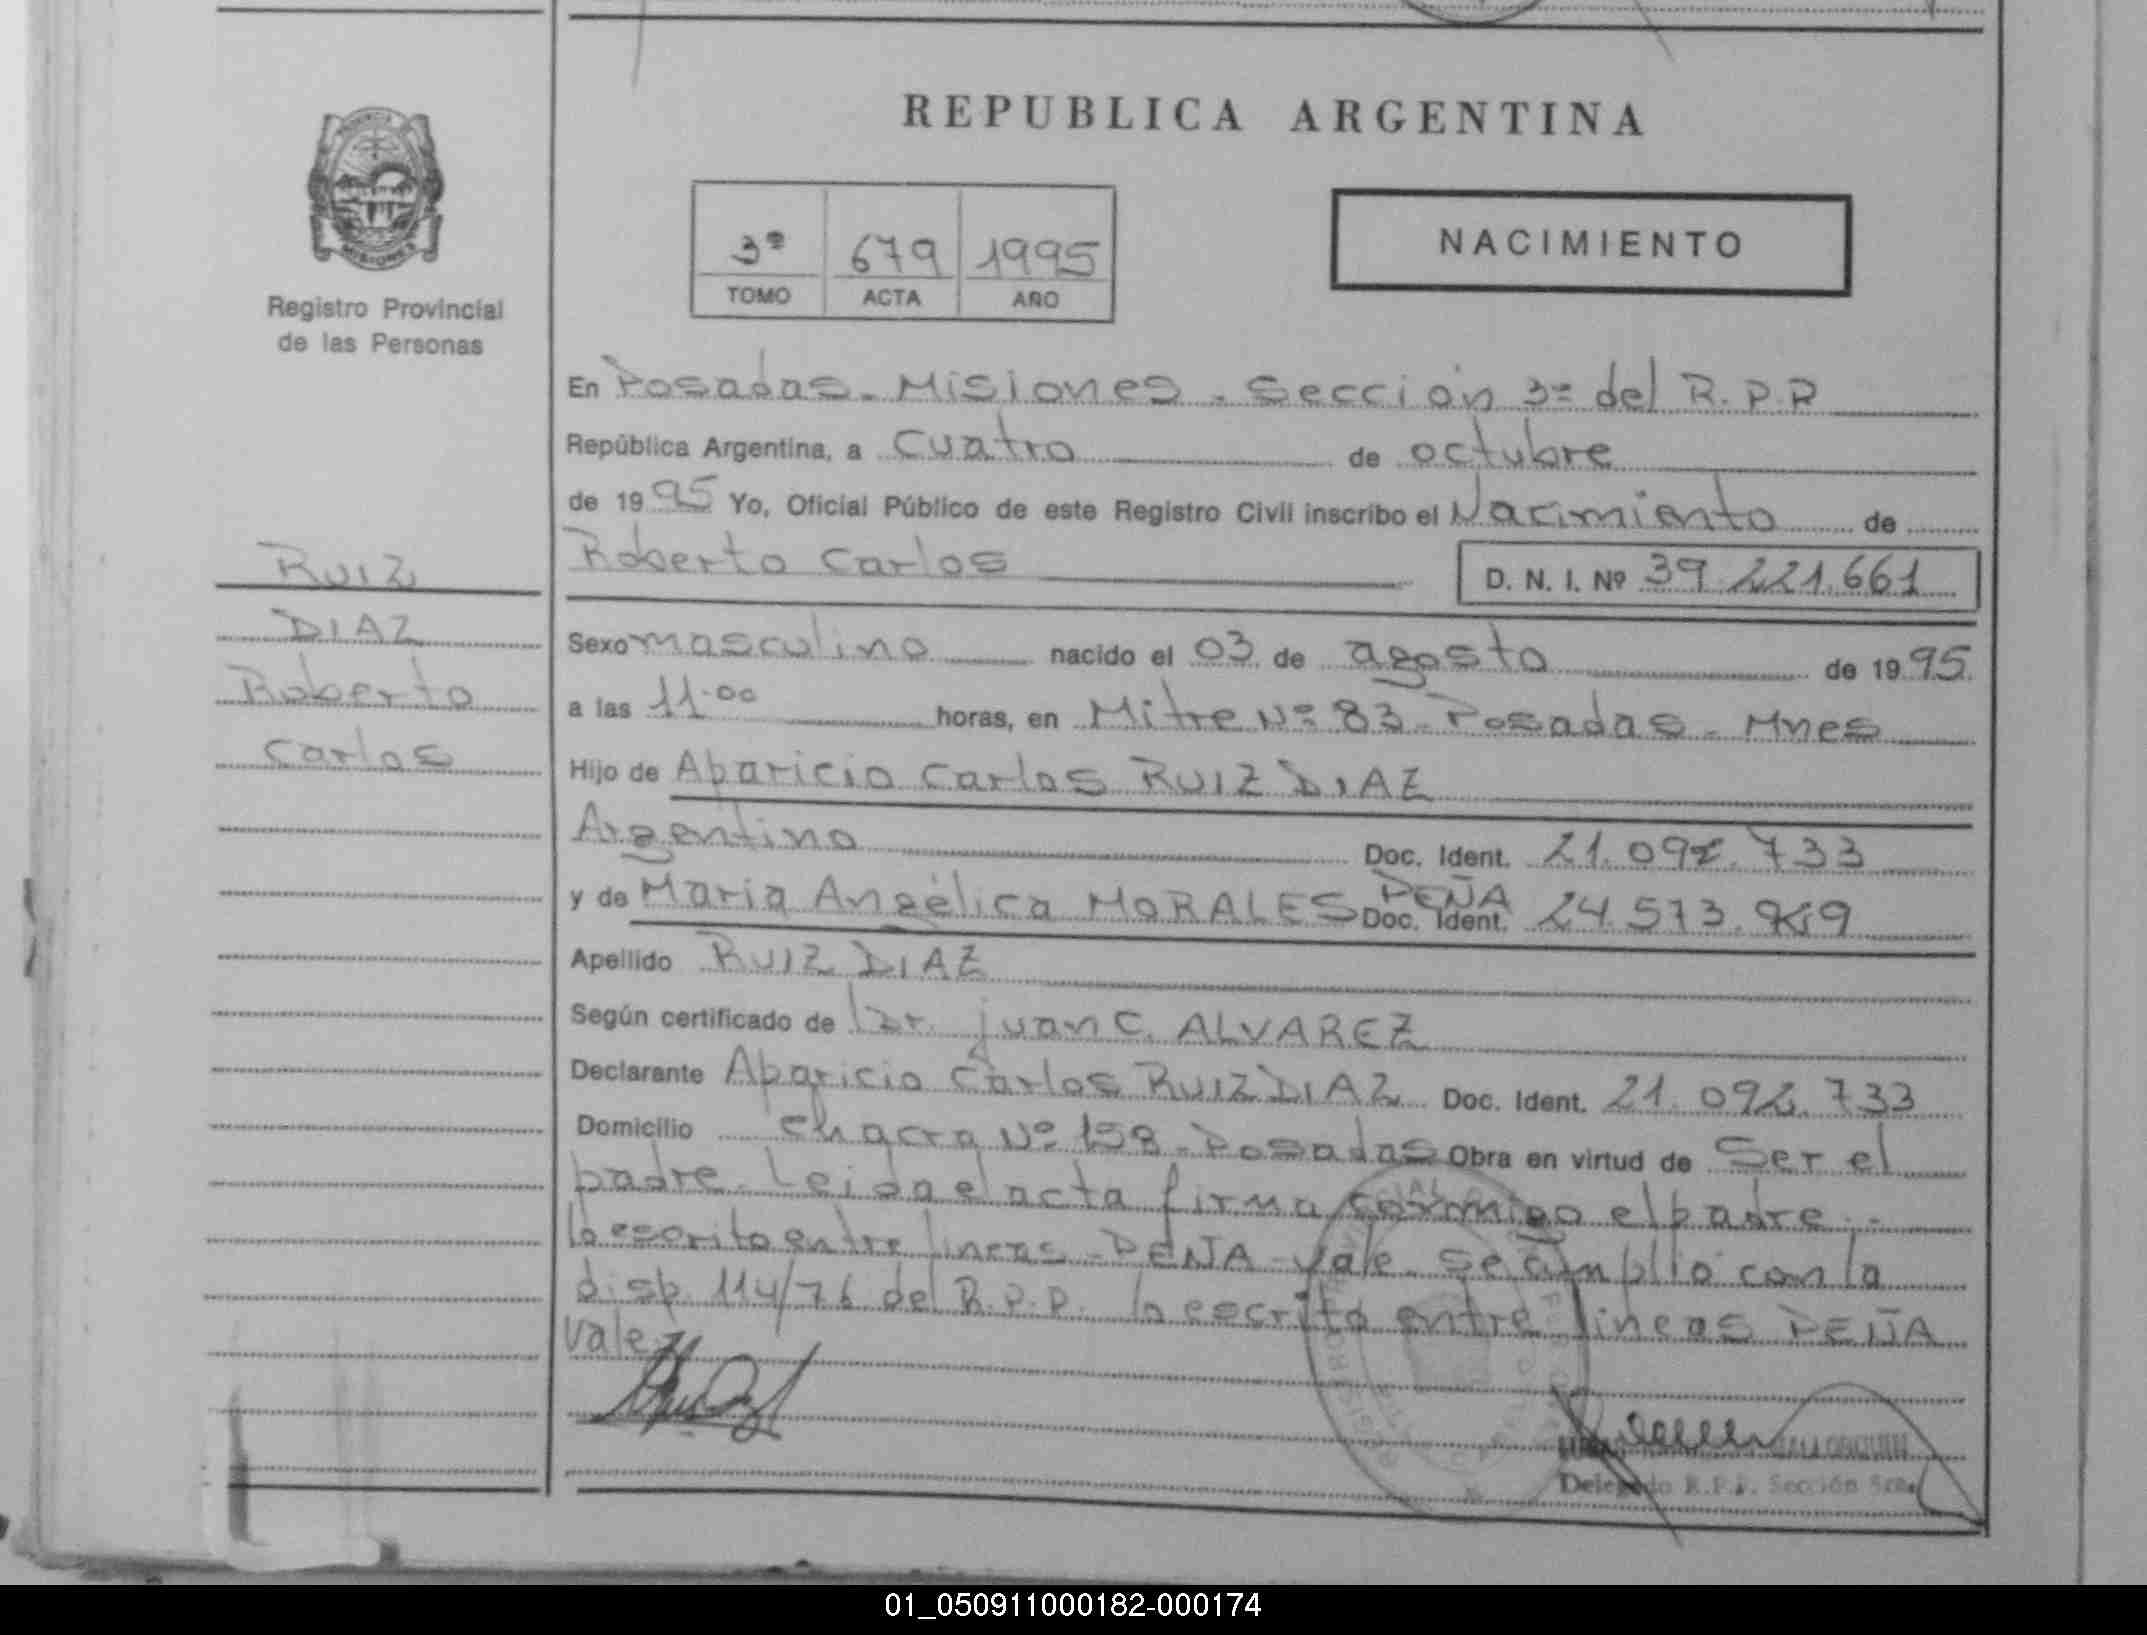 REPUBLICA ARGENTINA
Registro Provincial
de las Personas
3º 679 1995
TOMO ACTA AÑO
NACIMIENTO
RUIZ
DIAZ
Roberto
Carlos
En Posadas - Misiones - Sección 3º del R.P.P
República Argentina, a cuatro de octubre
de 1995 Yo, Oficial Público de este Registro Civil inscribo el Nacimiento de
Roberto Carlos D. N. I. Nº 39.221.661
Sexo masculino nacido el 03 de agosto de 1995
a las 11.00 horas, en Mitre Nº 83 - Posadas - Mnes
Hijo de Aparicio Carlos RUIZ DIAZ
Argentino Doc. Ident. 21.092.733
y de Maria Angélica MORALES PEÑA Doc. Ident. 24.573.
Apellido RUIZ DIAZ
Según certificado de Dr. juan C. ALVAREZ
Declarante Aparicio Carlos RUIZ DIAZ Doc. Ident. 21.092.733
Domicilio chacra Nº 158 - Posadas Obra en virtud de Ser el
padre. Leida el acta firma conmigo el padre.-
lo escrito entre lineas - PEÑA - Vale. Se amplió con la
disp. 114/76 del R.P.P. lo escrito entre lineas PEÑA
Vale
Delegado R.P.P. Sección 3ra.
01_050911000182-000174